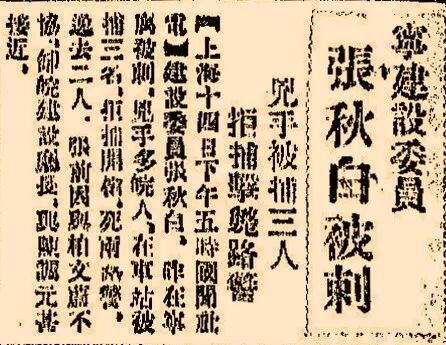 寧建設委員
張秋白被刺
兇手被捕三人
拒捕擊斃路警
【上海十四日下午五時國聞社
電】建設委員張秋白、昨在寧
寓被刺、兇手多皖人、在車站被
捕三名、拒捕開槍、死兩路警、
逸去二人、張前因與柏文蔚不
協、卸皖建設廳長、現調元甚
接近、